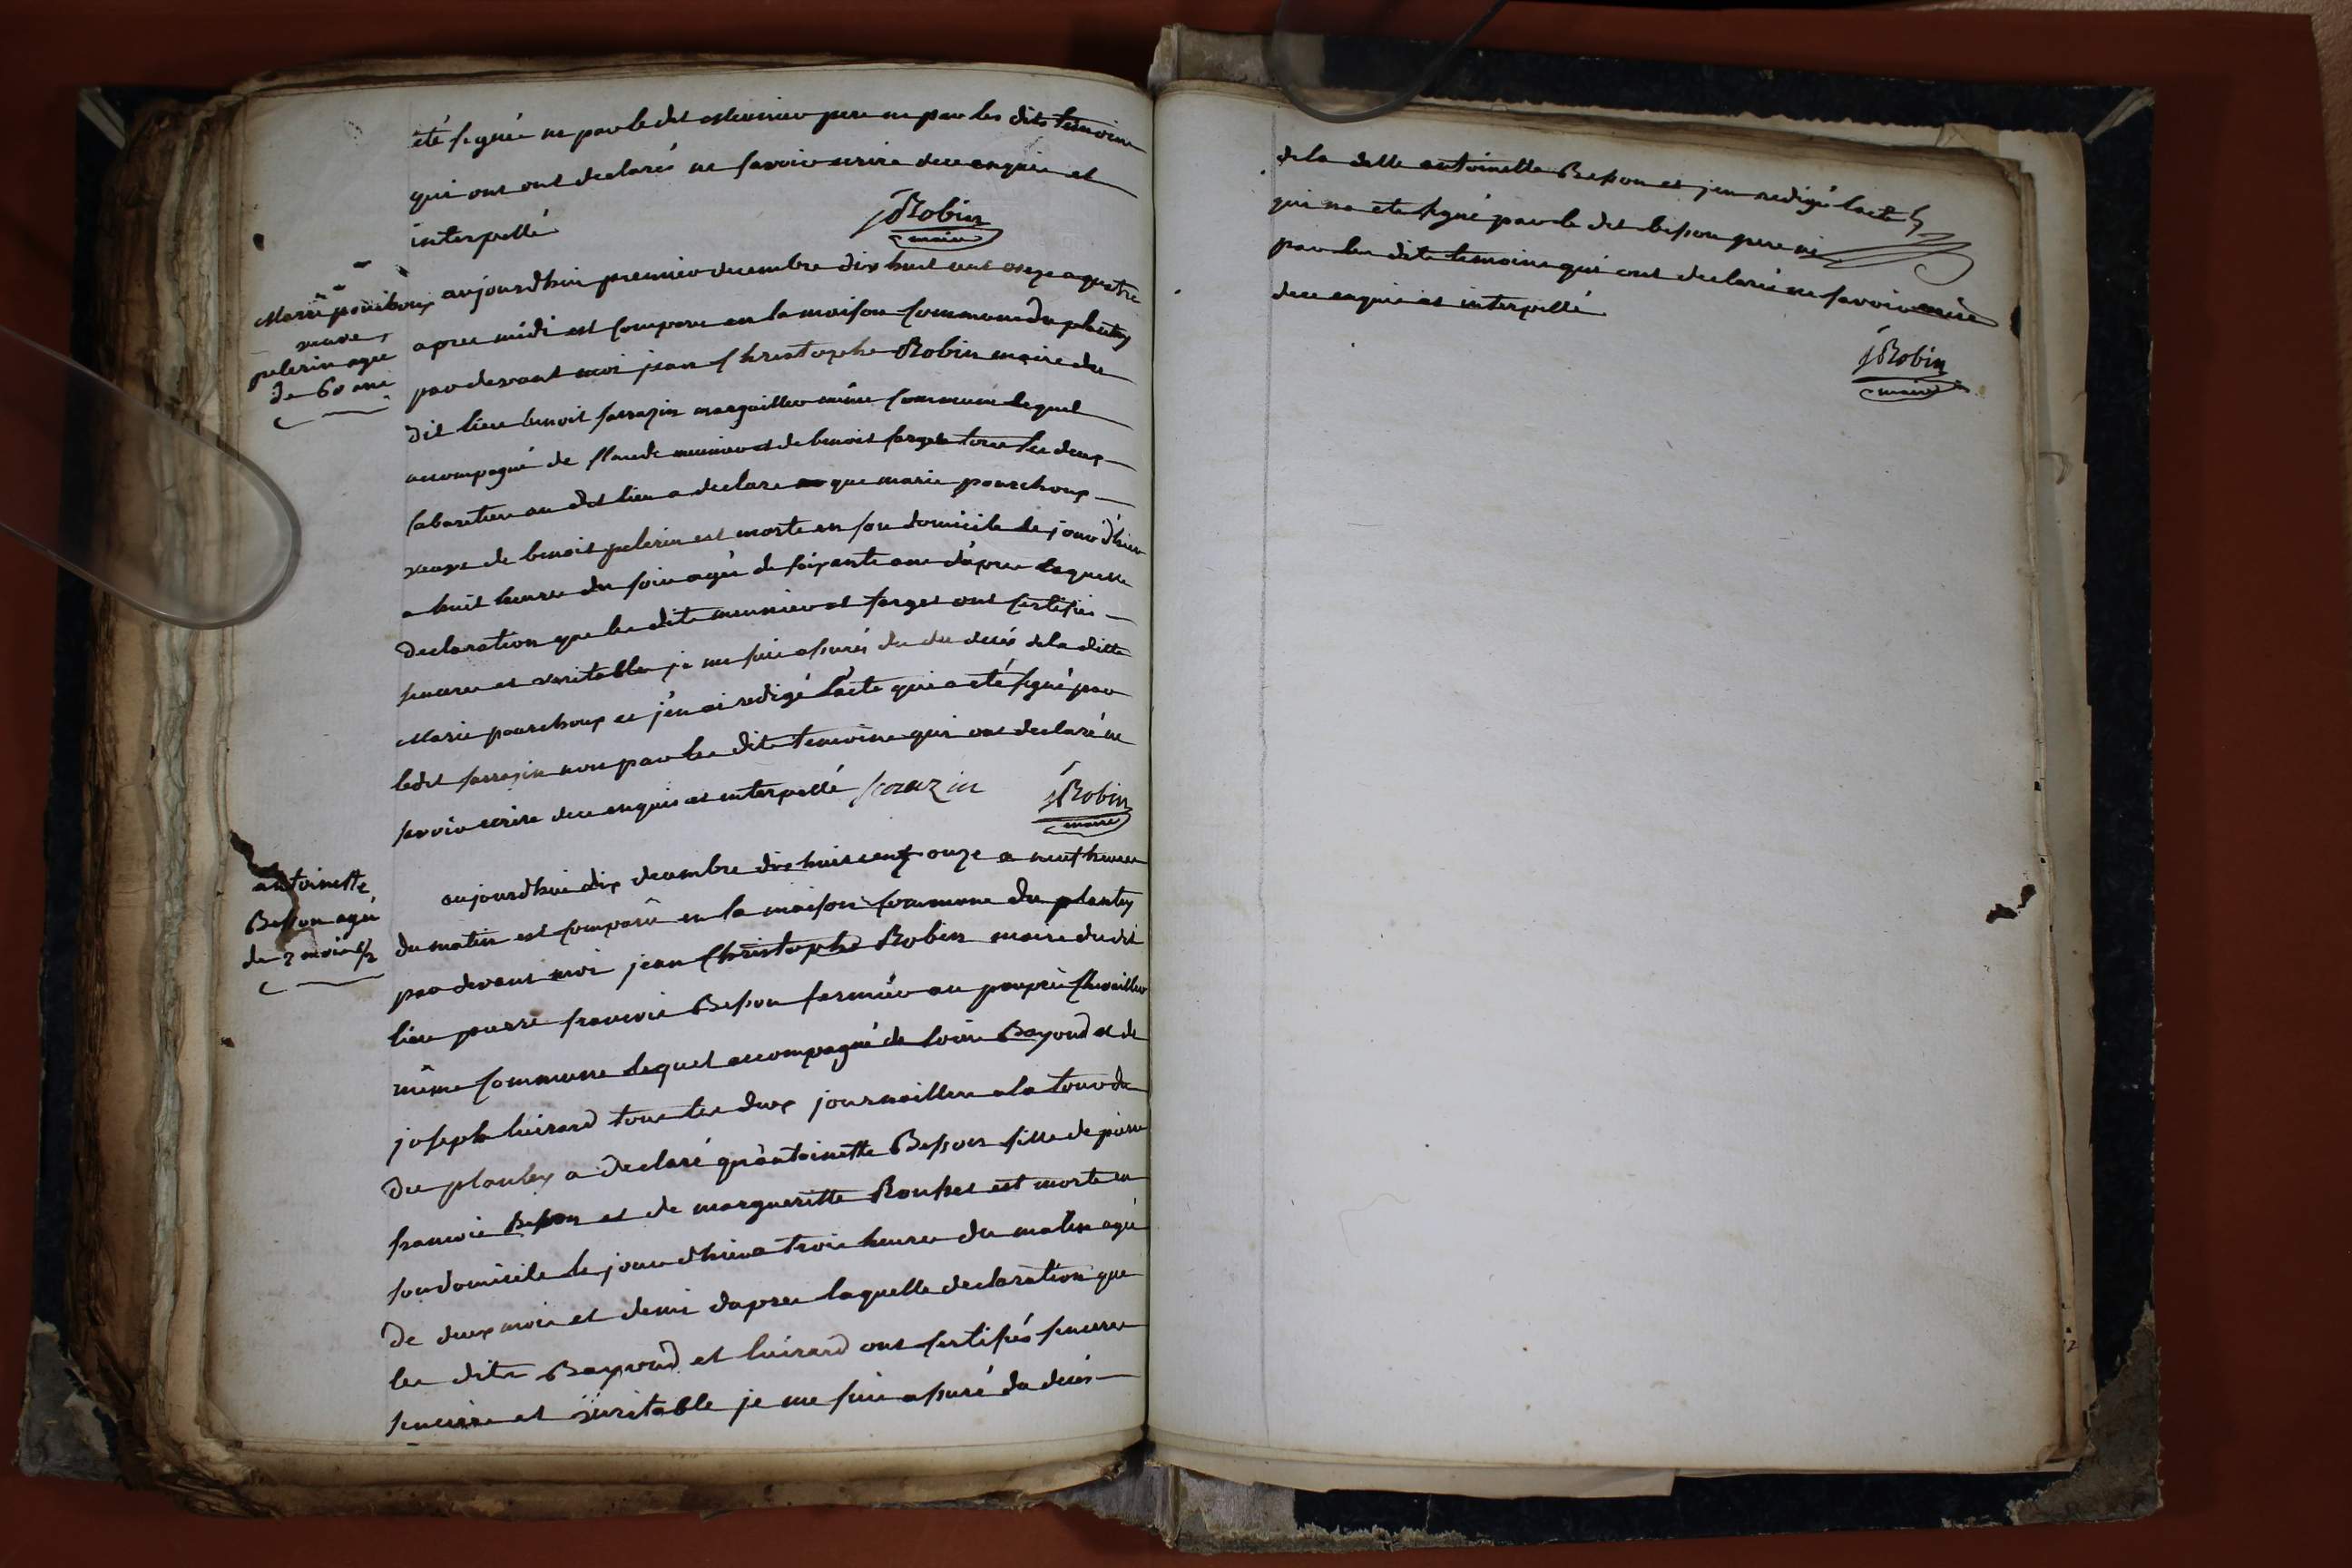 été signé ni par le dit Meunier pere ni par les dits temoins
qui ont ont declarés ne savoir ecrire de ce enquis et
interpellé
JRobin
maire
Marie pourchoux
veuve
pelerin agée
de 60 ans
aujourdhui premier decembre dix huit cent onze a quatre
apres midi est comparu en la maison commune du plantey
par devant moi jean Christophe Robin maire du
dit lieu benoit sarrazin marguiller même commune lequel
accompagné de Claude meunier et de benoit farget tous les deux
cabaretiers au dit lieu a declare que marie pourchoux
veuve de benoit pelerin est morte en son domicile le jour d'hier
a huit heures du soir agée de soixante ans d'apres laquelle
declaration que les dits meunier et farget ont certifiés
sincere et veritable je me suis assurés du du decés de la ditte
Marie pourchoux et j'en ai redigé l'acte qui a eté signé par
ledit sarrazin non par les dits temoins qui ont declaré ne
savoir ecrire de ce enquis et interpellé sarazin
JRobin
maire
antoinette
Besson agée
de 2 mois 1/2
aujourdhui dix decembre dix huit cent onze a neuf heures
du matin est comparu en la maison commune du plantey
par devant moi jean Christophe Robin maire du dit
lieu pierre francois Besson fermier au chevailler
même commune lequel accompagné de louis Bayoud et de
joseph luirard tous les deux journaillers a la tour du
du plantey a declaré qu'antoinette Besson fille de pierre
francois Besson et de margueritte Rousset est morte en
son domicile le jour dhier a trois heures du matin agée
de deux mois et demi dapres laquelle declaration que
les dits Bayoud et luirard ont certifiés sincere
sincere et veritable je me suis assuré du decés
de la ditte antoinette Besson et j'en redigé l'acte
qui na ete signé par le dit besson pere ni
par les dits temoins qui ont declaré ne savoir ecrire
de ce enquis et interpellé
JRobin
maire